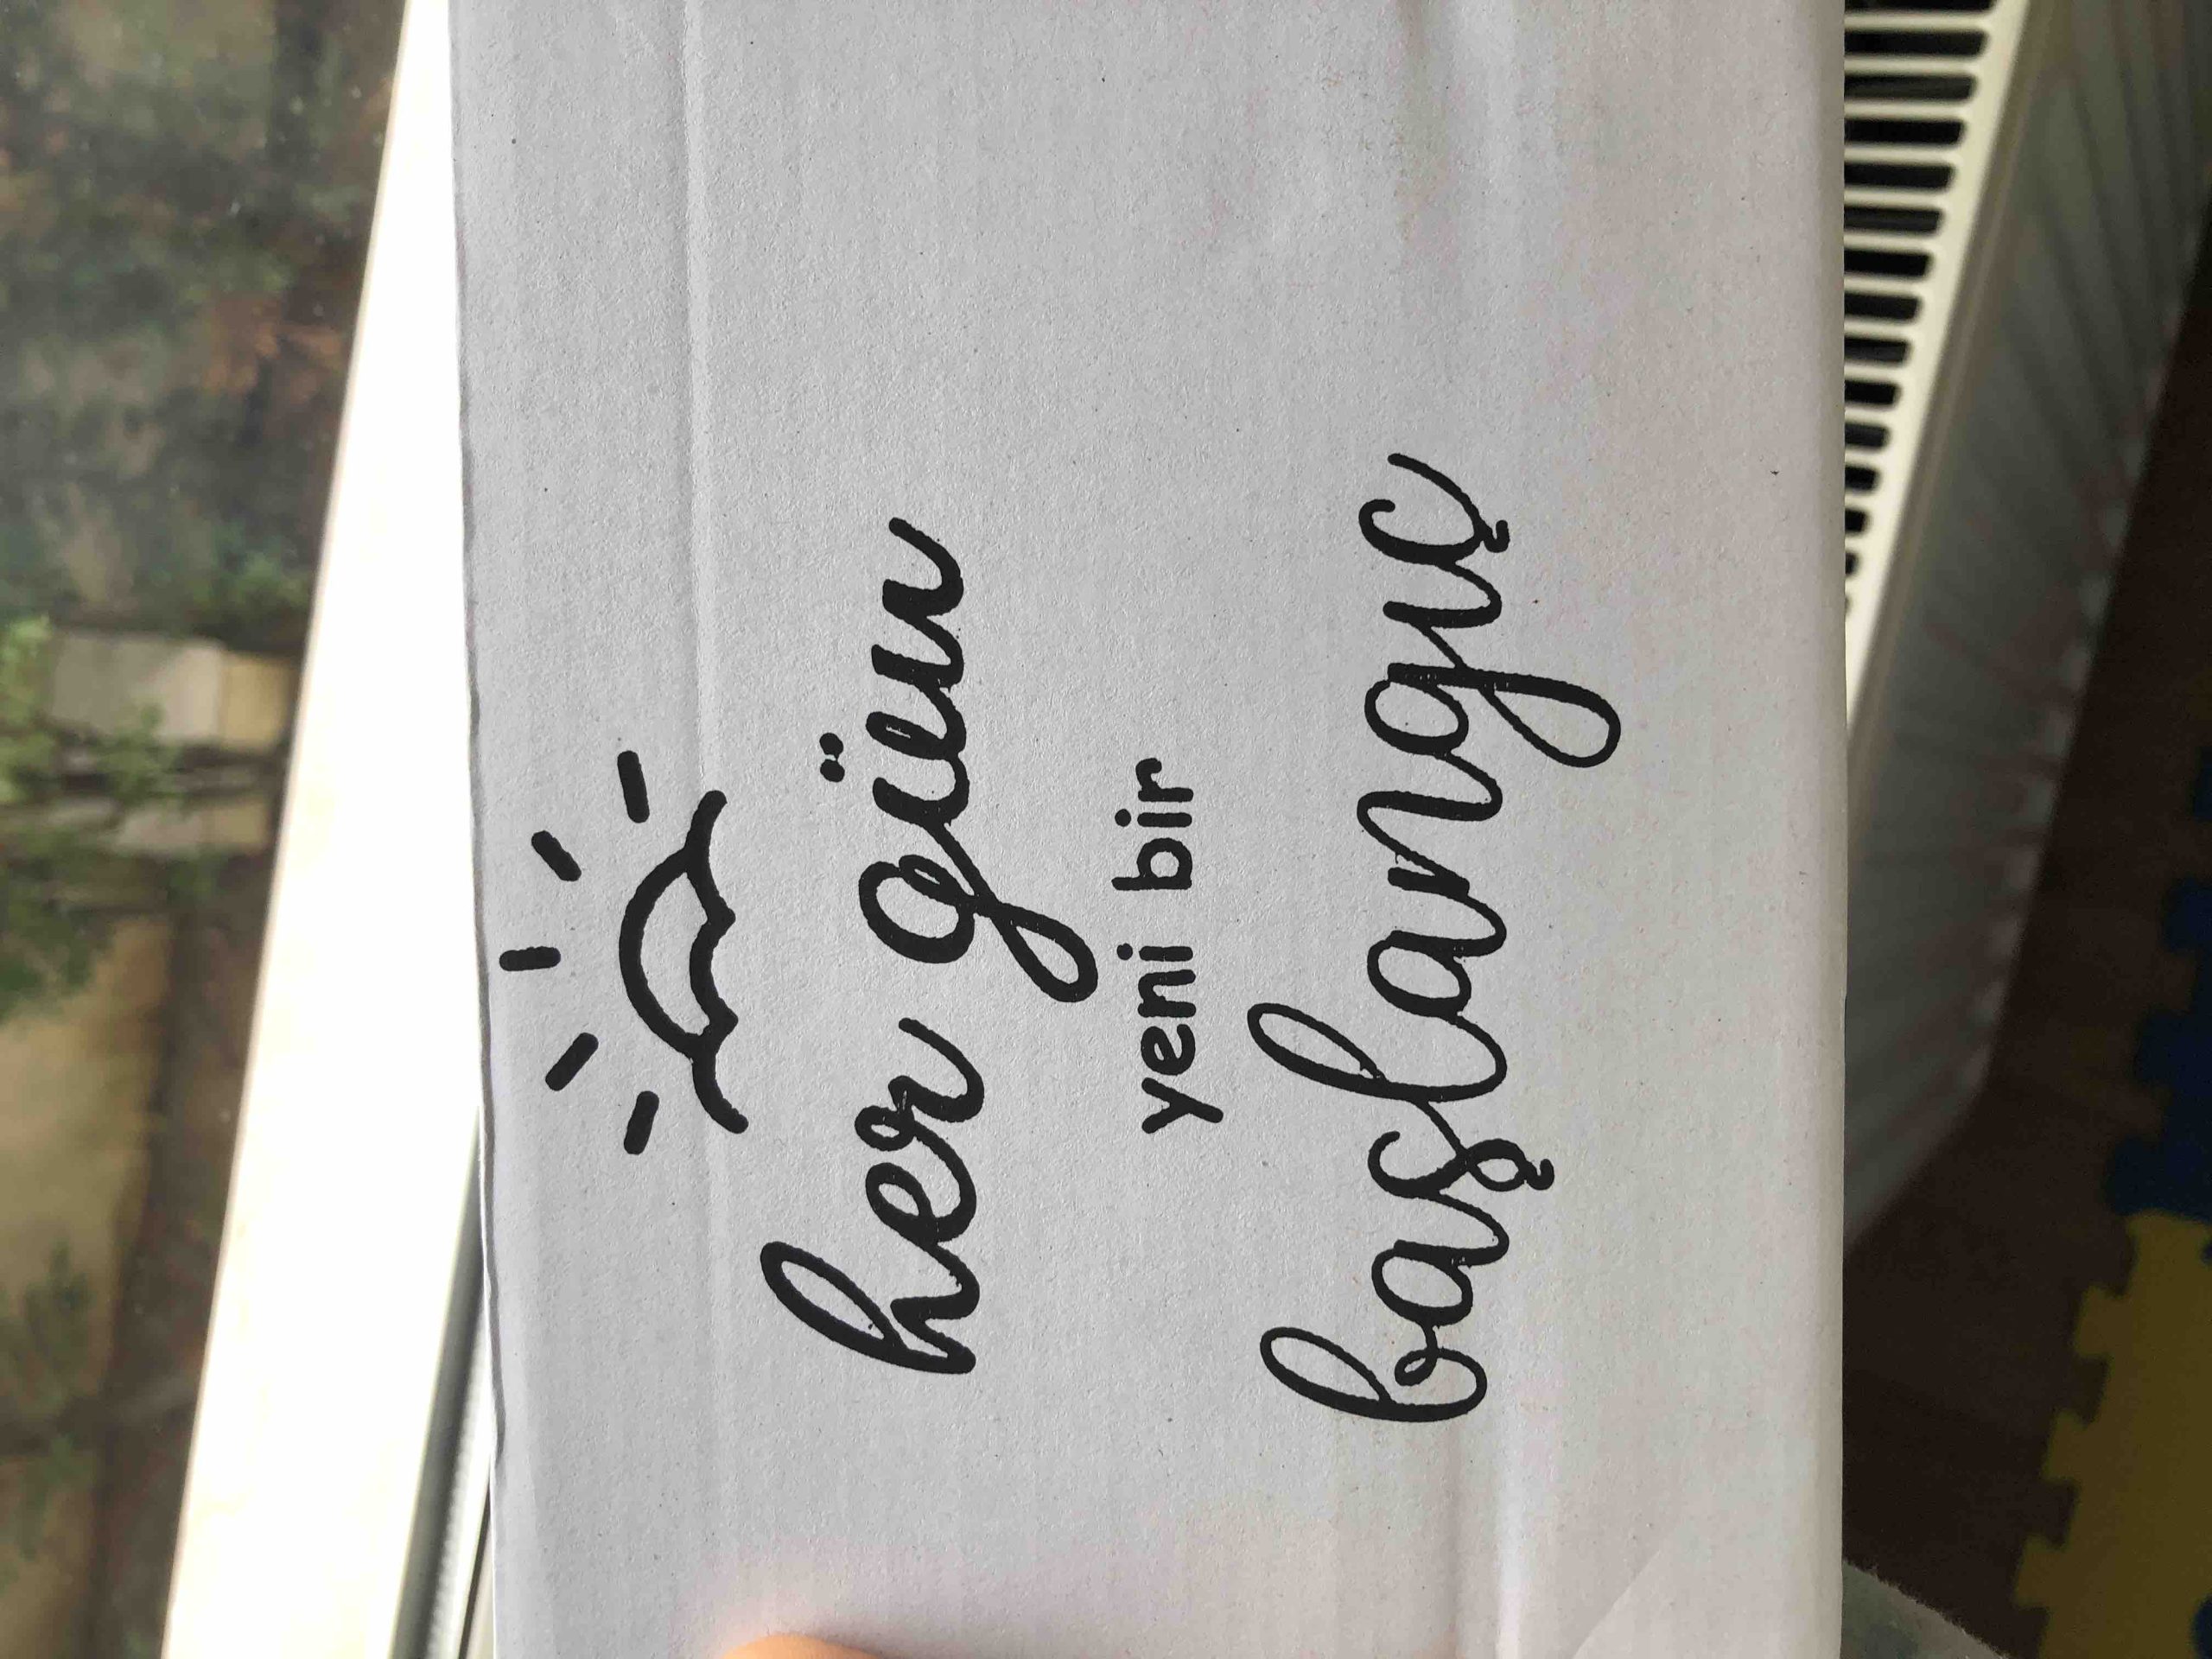 her gün
yeni bir
başlangıç